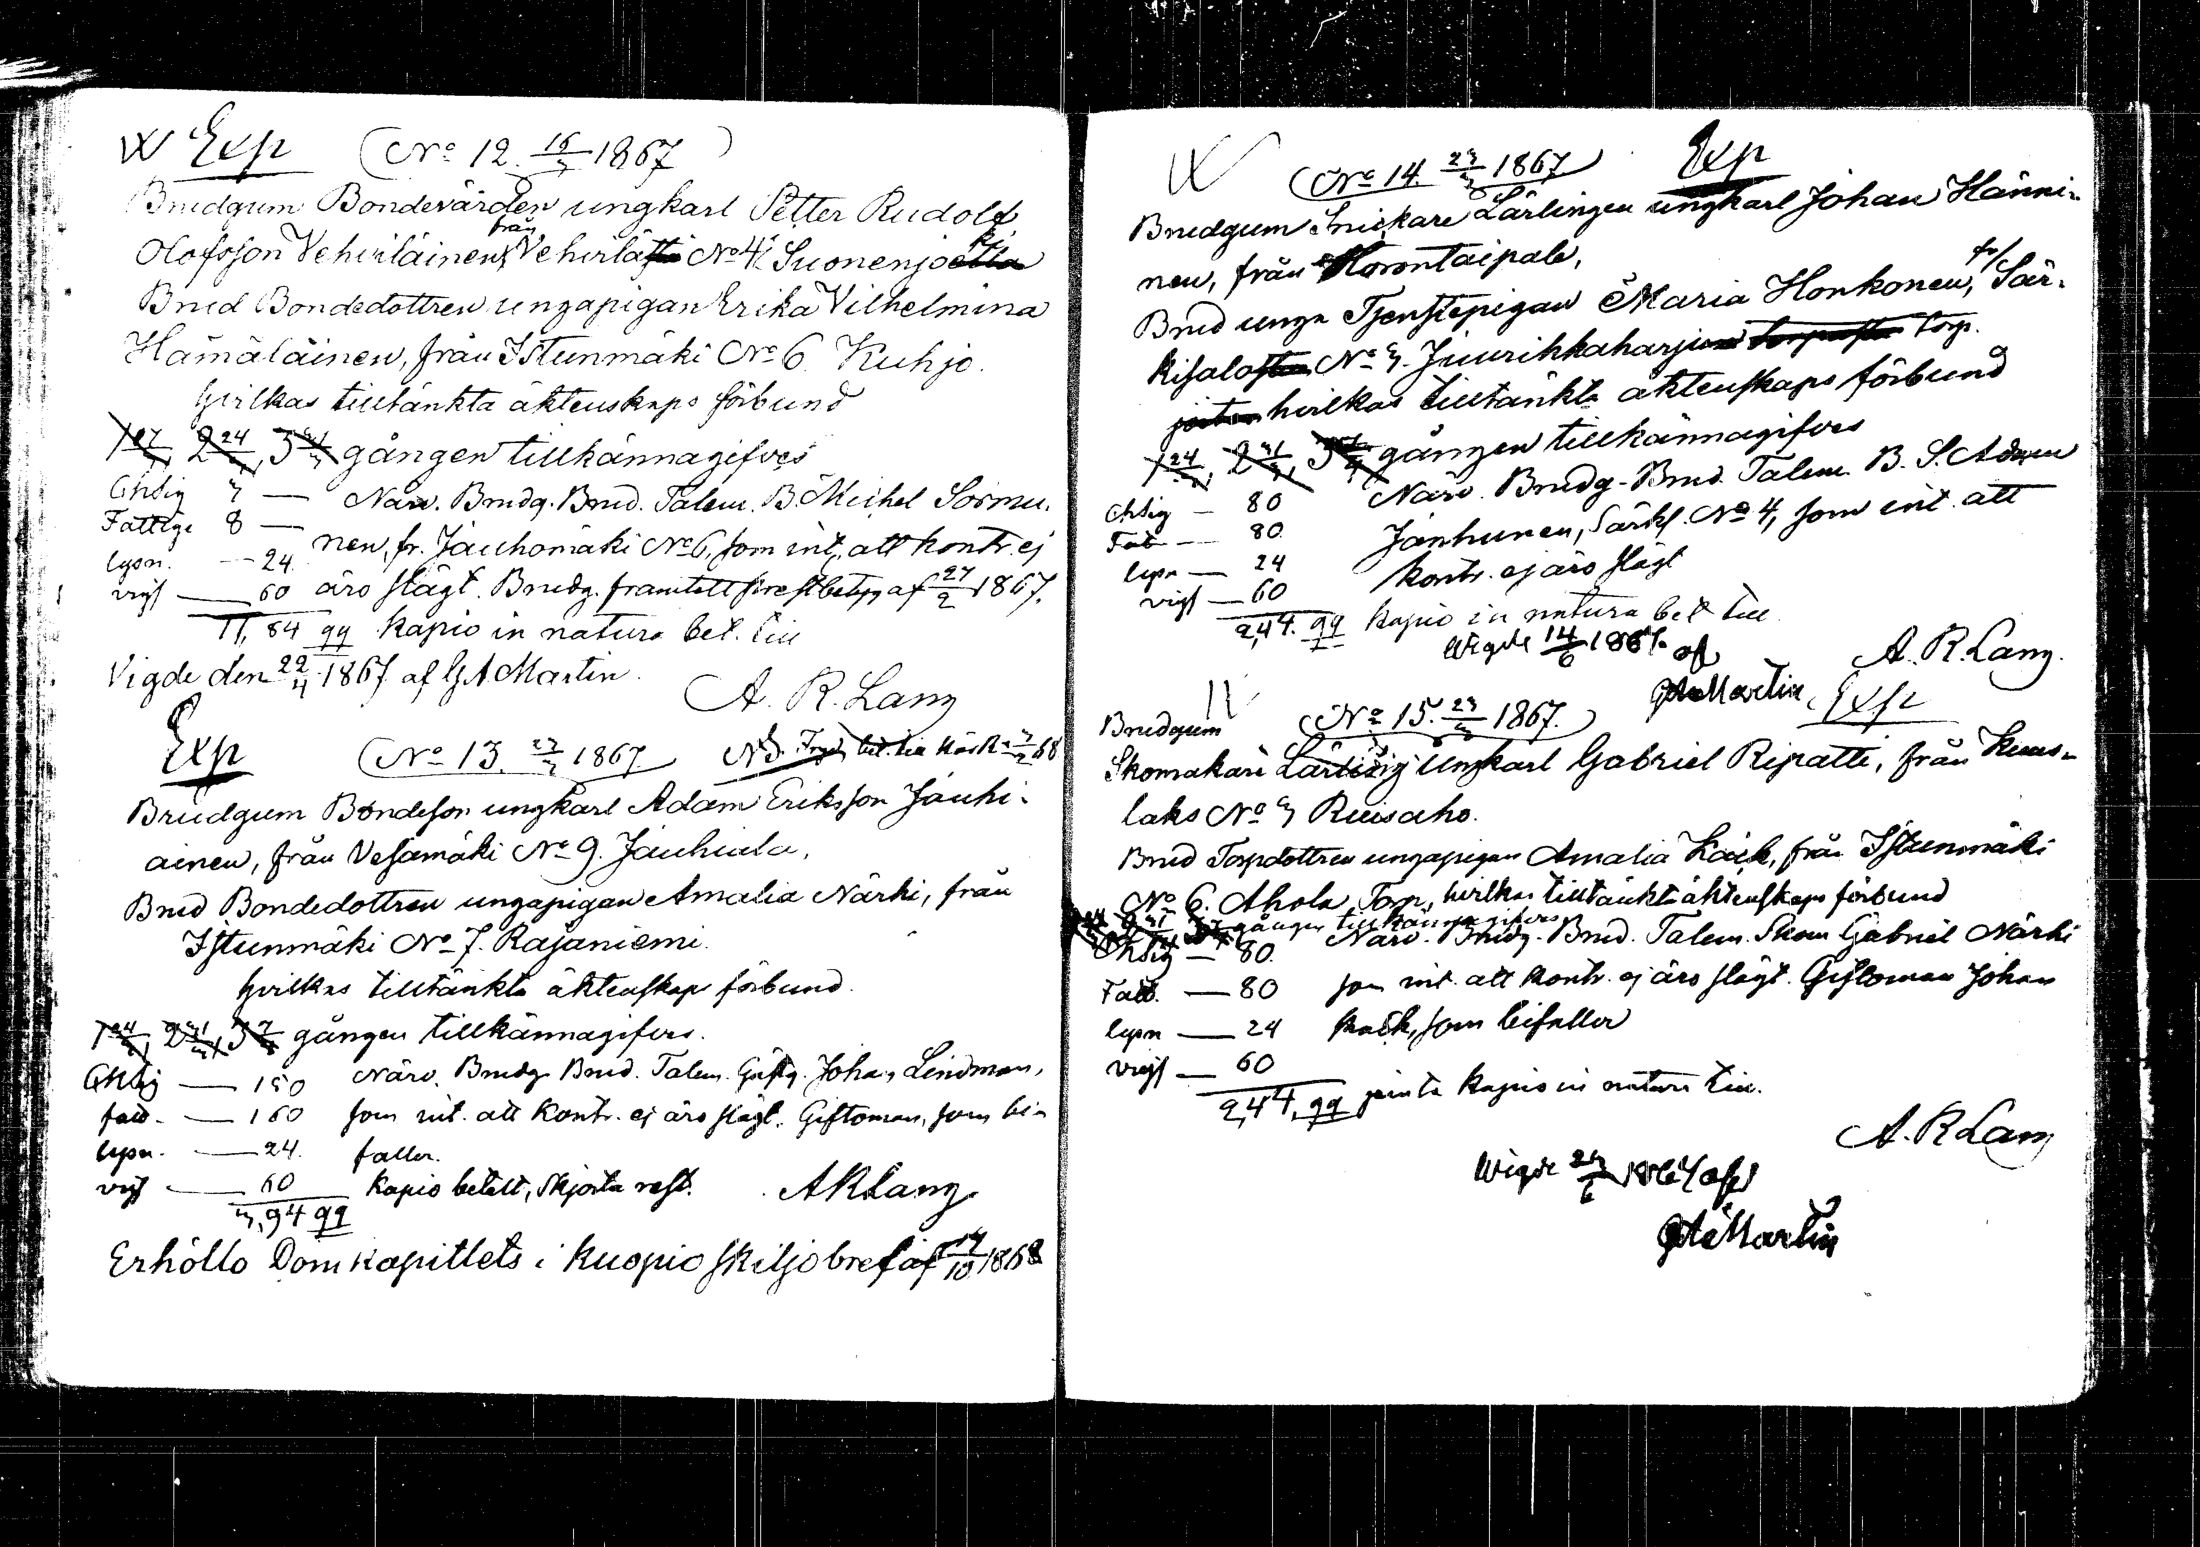 W Exp (No 12. 16/3 1867)
Brudgum Bondevärden ungkarl Petter Rudolf
Olofsson Vehviläinen, från Vehvilä No 4 Suonenjoki
Brud Bondedottren ungapigan Erika Vilhelmina
Hämäläinen, från Istunmäki No 6. Kuhjo.
hvilkas tilltänkta äktenskaps förbund
1 17/3, 2 24/3, 3 31/3 gången tillkännagifves
Ghslig 3 — Närv. Brudg. Brud. Talem. B. Michel Sormu-
Fattige 8 — nen, fr. Jauhomäki No 6, som int. att kontr. ej
lysn. — 24. äro slägt. Brudg. framtett prestbetyg af 27/2 1867.
vigs — 60
11,84 qq kapio in natura bet. till
Vigde den 22/4 1867 af G A Martin.
A. R. Lang
Exp (No 13. 23/3 1867 NB. bet. 68
Brudgum Bondeson ungkarl Adam Eriksson Jauhi-
ainen, från Vesamäki No 9. Jauhiala.
Brud Bondedottren ungapigan Amalia Närhi, från
Istunmäki No 7. Rajaniemi.
hvilkas tilltänkta äktenskaps förbund.
1 24/3, 2 31/3, 3 7/4 gången tillkännagifves.
Ghslig — 150 Närv. Brudg. Brud. Talem. Gästg. Johan Lindman,
fatt. — 160 som int. att kontr. ej äro slägt. Giftoman, som bi-
lysn. — 24. faller.
vigs — 60 Kapio betalt, skjorta rest. A R Lang
3,94 qq
Erhöllo Domkapitlets i Kuopio skiljobref af 14/10 1868
W (No 14. 23/3 1867) Exp
Brudgum Snickare Lärlingen ungkarl Johan Hänni-
nen, från Horontaipale,
Brud unga Tjenstepigan Maria Honkonen, fr. Sär-
kisalo No 3. Juurikkaharju torp.
hvilkas tilltänkta äktenskaps förbund
1 24/3, 2 31/3, 3 7/4 gången tillkännagifves
Ghslig — 80 Närv. Brudg. Brud. Talem. B. S. Adam
Fatt — 80. Jänhunen, Särks. No 4, som int. att
lysn — 24 kontr. ej äro slägt
vigs — 60
2,44. qq kapio in natura bet till
Wigde 14/6 1867 af
A. R. Lang.
G A Martin
W (No 15. 23/3 1867.) Exp
Brudgum
Skomakare Lärling ungkarl Gabriel Ripatti, från Kuus-
laks No 3 Ruisaho.
Brud Torpdottren ungapigan Amalia Kack, från Istunmäki
No 6. Ahola Torp, hvilkas tilltänkta äktenskaps förbund
gången tillkännagifves
Ghslig — 80. Närv. Brudg. Brud. Talem. Skom Gabriel Närhi
Fatt. — 80 som int. att kontr. ej äro slägt. Giftoman Johan
lysn — 24 Kack, som bifaller
vigs — 60
2,44, qq kapio in natura till.
A. R Lang
Wigde 1867 af
G A Martin